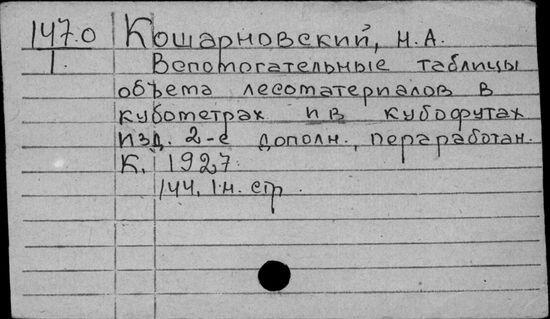 147.0 Кошарновский, Н.А.
1. Вспомогательные таблицы
объема лесоматериалов в
кубометрах и в кубофутах
Изд. 2-е дополн., переработан.
К. 1927.
144, 1 н. стр.